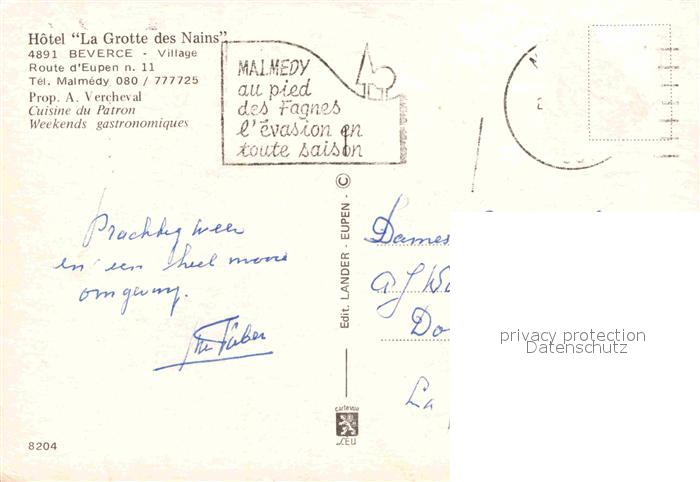 Hôtel "La Grotte des Nains"
4891 BEVERCE - Village
Route d'Eupen n. 11
Tél. Malmédy 080 / 777725
Prop. A. Vercheval
Cuisine du Patron
Weekends gastronomiques
MALMEDY
au pied
des Fagnes
l'évasion en
toute saison
Prachtig weer
en een heel mooie
omgeving.
Faber
Edit. LANDER - EUPEN - ©
Dames
La
privacy protection
Datenschutz
8204